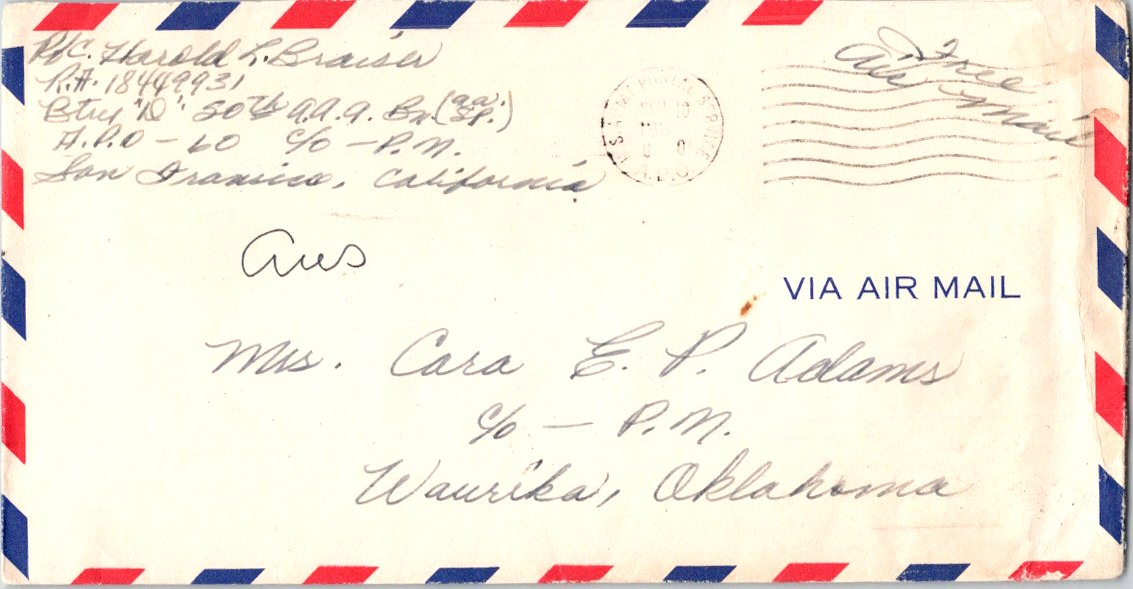 Pfc. Harold L. Braiser
R.A. 18449931
Btry "D" 50th A.A.A. Bn. (aa. SP.)
A.P.O - 60 c/o - P.M.
San Fransico, California
Free
Air Mail
Ans
VIA AIR MAIL
Mrs. Cara E. P. Adams
c/o - P.M.
Waurika, Oklahoma